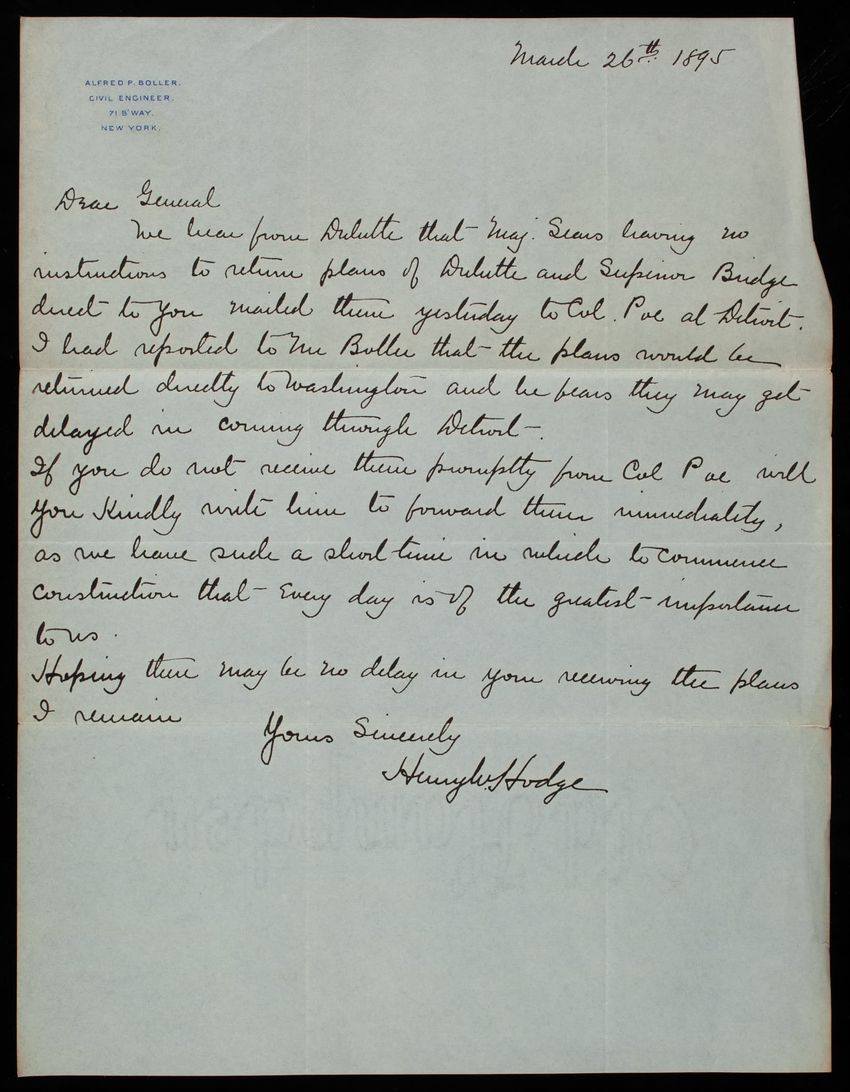 March 26th 1895
ALFRED P. BOLLER.
CIVIL ENGINEER.
71 B'WAY.
NEW YORK.
Dear General
We hear from Duluth that Maj. Sears having no
instructions to return plans of Duluth and Superior Bridge
direct to you mailed them yesterday to Col. Poe at Detroit.
I had reported to Mr Boller that the plans would be
returned directly to Washington and he fears they may get
delayed in coming through Detroit.
If you do not receive them promptly from Col Poe will
you Kindly write him to forward them immediately,
as we have such a short time in which to commence
construction that Every day is of the greatest importance
to us.
Hoping there may be no delay in your receiving the plans
I remain
Yours Sincerely
Henry W. Hodge